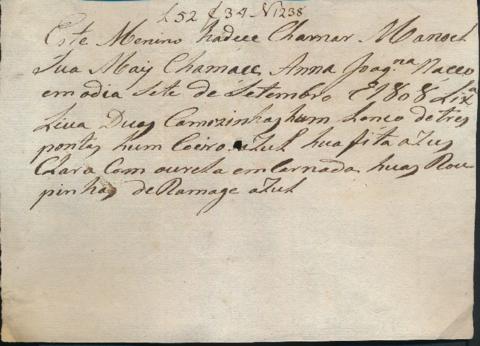 L 52 f 34 N 1238
Este Menino hadece Chamar Manoel
Sua Maij Chamace Anna Joaq.na Naceo
em odia Sete de Setembro E1808 Lix.a
Leva Duas Camozinhas hum Lenco de tres
pontas hum Coeiro azul huã fita azul
Clara Com ourela emCarnada huas Rou
pinhas de Ramage azul